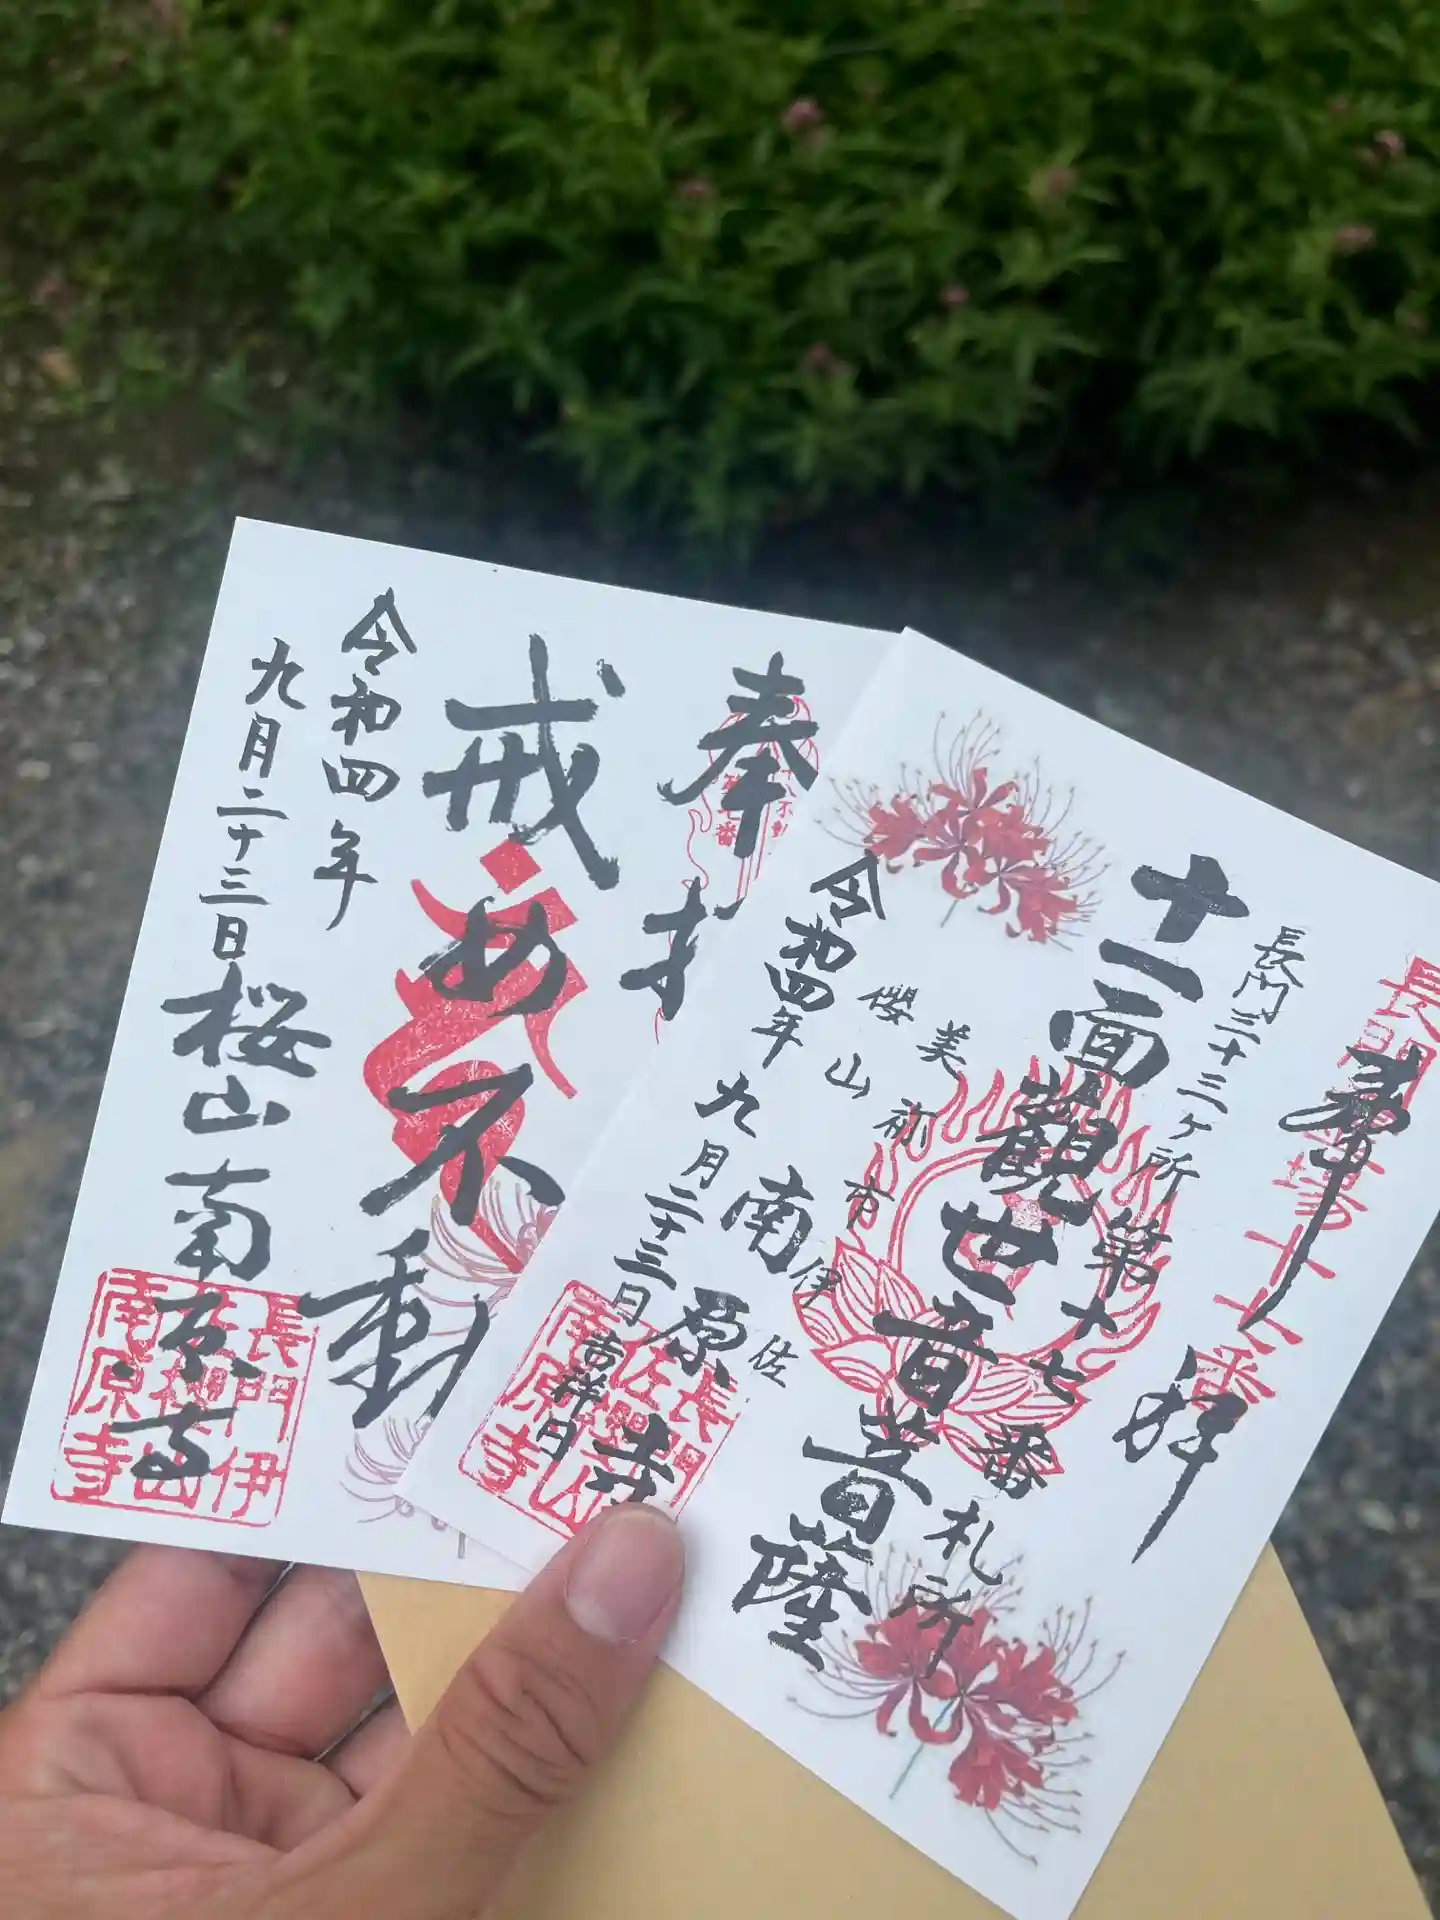 奉
戒め不動
令和四年
九月二十三日
桜山南原寺
長門伊
佐桜山
南原寺
長門霊場十七番
奉拝
長門三十三ヶ所第十七番札所
十一面觀世音菩薩
美祢市伊佐
櫻山
南原寺
令和四年九月二十三日吉祥日
長門
南原寺